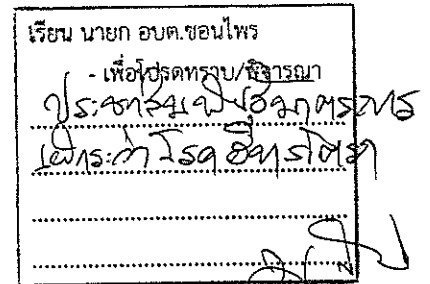 เรียน นายก อบต.ซอนไพร
- เพื่อโปรดทราบ/พิจารณา
ประชาสัมพันธ์มาตรการ
เฝ้าระวังโรค